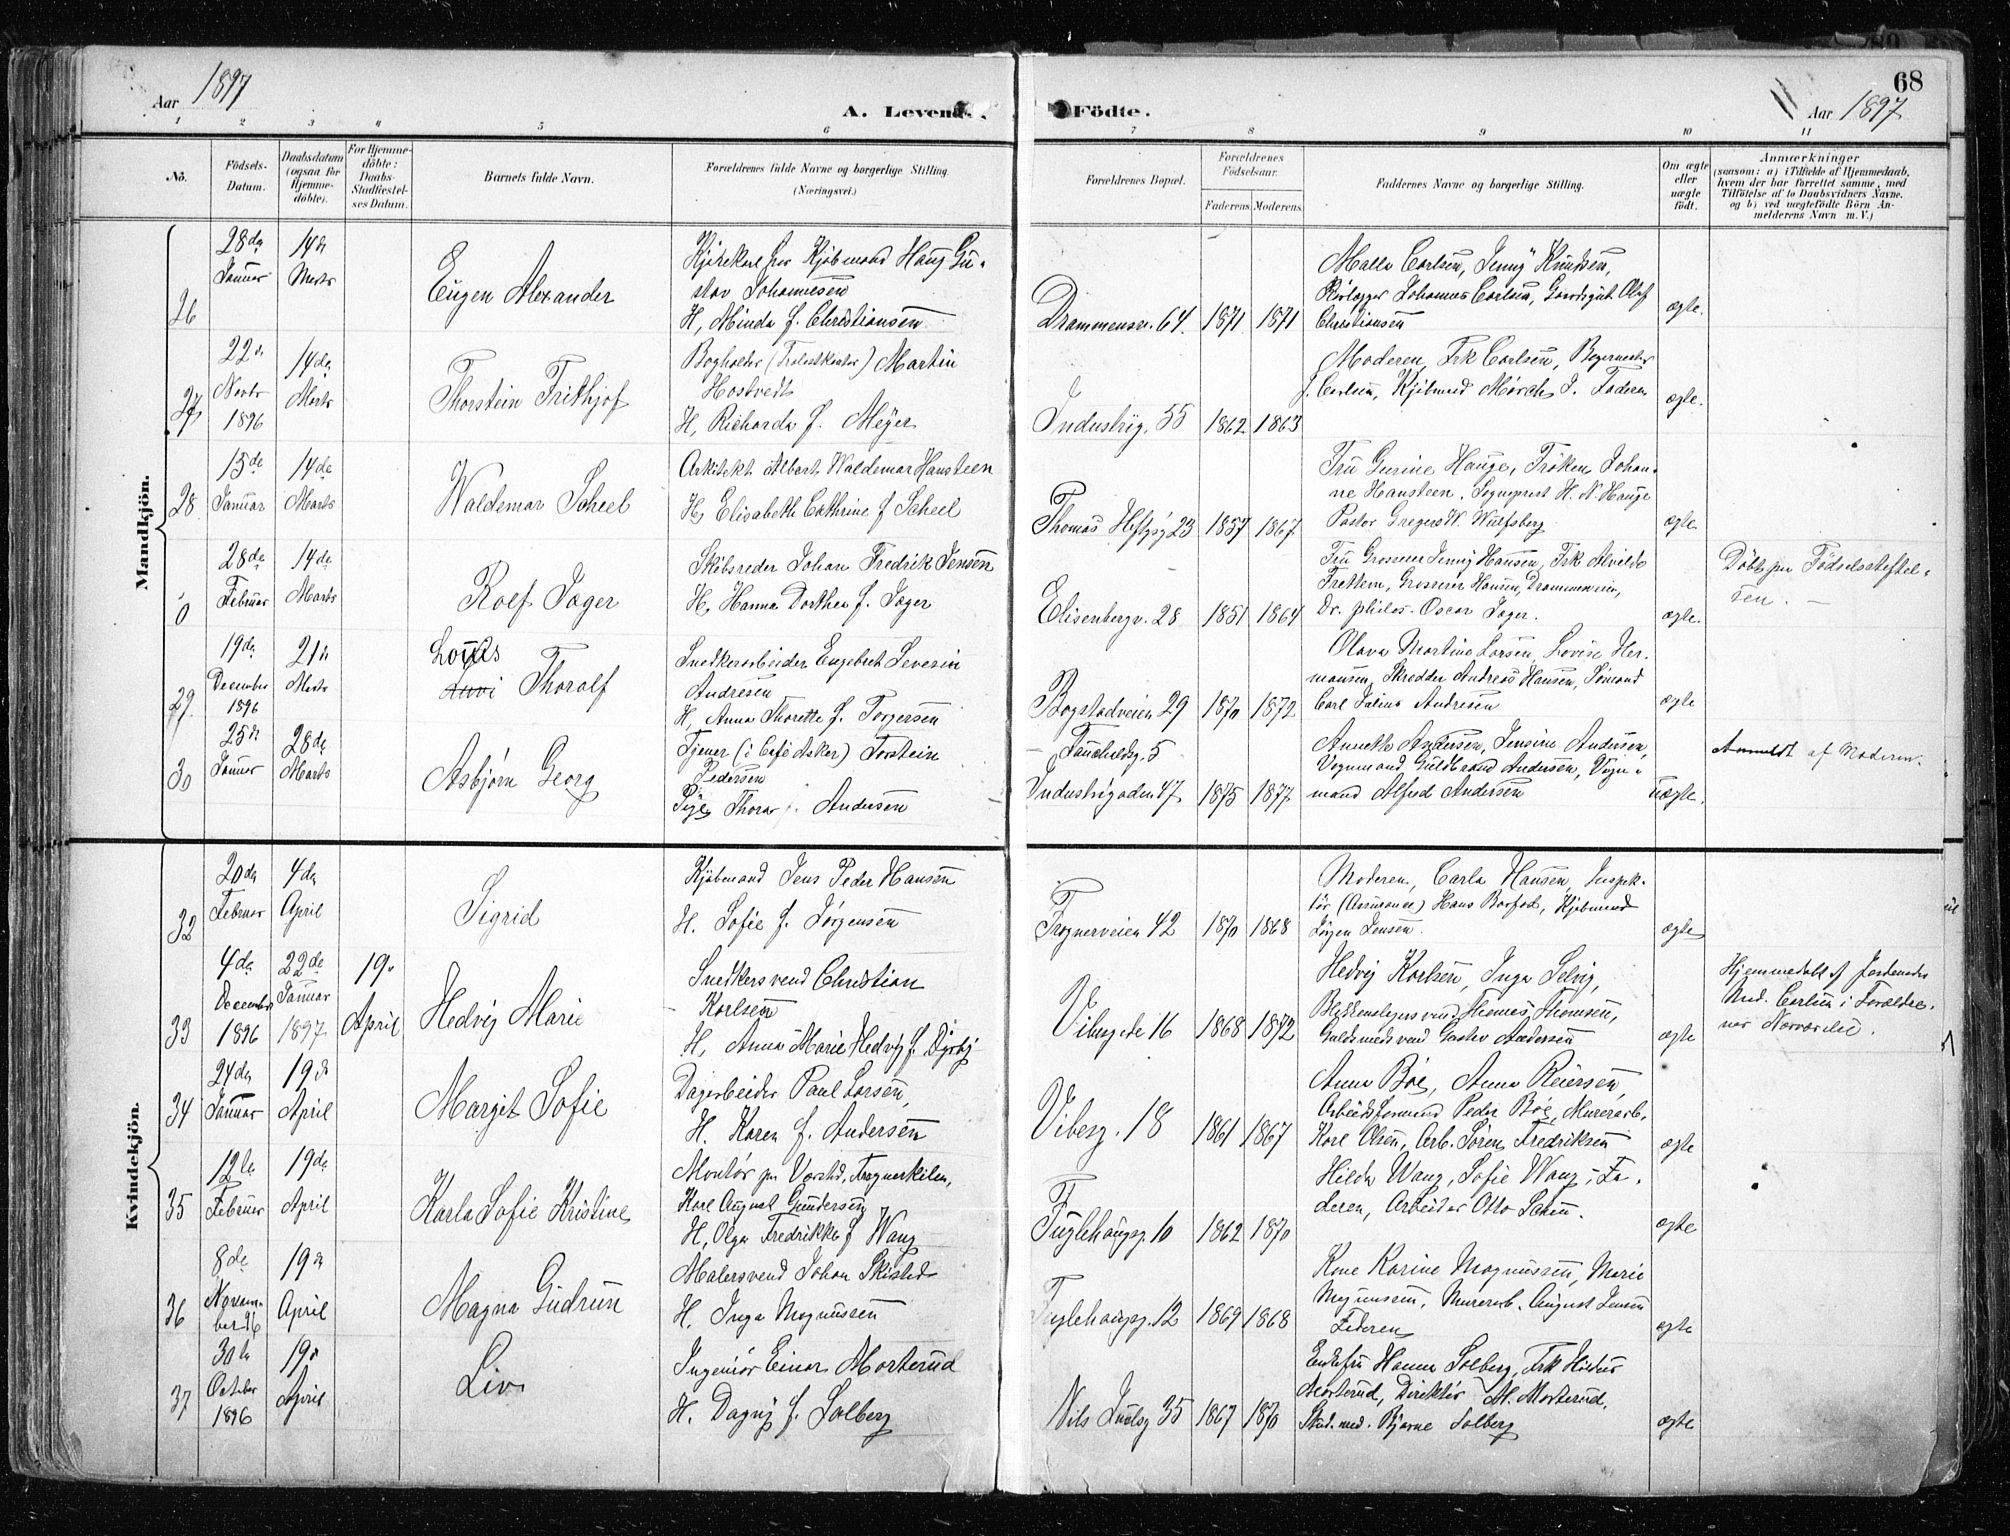 Aar 1897
A. Levende
Födte.
68
Aar 1897
1 2 3 4 5 6 7 8 9 10 11
No.
Födsels-Datum.
Daabsdatum (ogsaa for Hjemme-döbte).
For Hjemme-döbte: Daabs-Stadfæstel-ses Datum.
Barnets fulde Navn.
Forældrenes fulde Navne og borgerlige Stilling. (Næringsvei.)
Forældrenes Bopæl.
Forældrenes Födselsaar.
Faderens. Moderens.
Faddernes Navne og borgerlige Stilling.
Om ægte eller uægte födt.
Anmærkninger
(saasom: a) i Tilfælde af Hjemmedaab, hvem der har forrettet samme, med Tilföielse af to Daabsvidners Navne. og b) ved uægtefödte Börn An-melderens Navn m. V.)
Mandkjön.
26
28da Januar
14de Marts
Eugen Alexander
Kjørekarl hos Kjøbmand Hans Gu-
stav Johannesen
H, Minda f. Christiansen
Drammensv. 64
1871 1871
Malla Carlsen, Jenny Knudsen,
Rørlægger Johannes Carlsen, Gaardsgut Olaf
Christiansen
ægte.
27
22de Novbr 1896
14de Marts
Thorstein Frithjof
Bogholder (Frelstkontor) Martin
Hostvedt
H, Richarda f. Meyer
Industrig. 55
1862 1863
Moderen, Frk Carlsen, Bagermester
J. Carlsen, Kjøbmd Mørch, J. Faderen
ægte.
28
15de Januar
14de Marts
Waldemar Scheel
Arkitekt Albert Waldemar Hansteen
H, Elisabeth Cathrine f Scheel
Thomas Heftyesg 23
1857 1867
Fru Gurine Hauge, Frøken Johan-
ne Hansteen, Sogneprest H. N. Hauge
Pastor Gregers W. Wulfsberg
ægte
0
28de Februar
14de Marts
Rolf Jæger
Skibsreder Johan Fredrik Jensen
H, Hanna Dorthea f. Jæger
Elisenbergv. 28
1851 1864
Fru Grosserer Jenny Hansen, Frk Alvilde
Grosserer Hansen, Drammensveien,
Dr. philos. Oscar Jæger.
ægte.
Döbt paa Fødselsstiftel-
sen. —
29
19de December 1896
21de Marts
Louis Thoralf
Snedkerarbeider Engebret Severin
Andresen
H, Anna Thorette f. Torgersen
Bogstadveien 29
1870 1872
Olava Martine Larsen, Lovise Her-
mansen, Skredder Andreas Hansen, Sømand
Carl Julius Andresen
ægte
30
25de Januar
28de Marts
Asbjørn Georg
Tjener (i Café Asker) Torstein
Pedersen
Pige Thora Andersen
— Fauchaldsg. 5
Industrigaden 47
1875 1877
Anneth Andersen, Jensine Andersen,
Vognmand Guldbrand Andersen, Vogn-
mand Alfred Andersen
uægte.
Anmeldt af Moderen.
Kvindekjön.
32
20de Februar
4de April
Sigrid
Kjøbmand Jens Peder Hansen
H. Sofie f. Jørgensen
Frognerveien 42
1870 1868
Moderen, Carla Hansen, Inspek-
tør (Assurance) Hans Barfod, Kjøbmand
Jørgen Jensen.
ægte
33
4de December 1896
22de Januar 1897
19. April
Hedvig Marie
Snedkersvend Christian
Karlsen
H, Anna Marie Hedvig f. Dyrby
Vibesgade 16
1868 1872
Hedvig Karlsen, Inga Selvig,
Blikkenslagersvend Thomas Thomsen,
Guldsmedsvend Gustav Andersen
ægte
Hjemmedøbt af Jordemoder
Carlsen i Forældre-
nes Nærværelse.
34
24de Januar
19de April
Margit Sofie
Dagarbeider Paul Larsen,
H. Karen f. Andersen
Vibesg. 18
1861 1867
Anna Bøe, Anna Reiersen,
Arbeidsformand Peder Bøe, Murerarb.
Karl Olsen, Arb. Søren Fredriksen
ægte
35
12te Februar
19de April
Karla Sofie Kristine
Montør paa Værksted, Frognerkilen,
Karl August Gundersen
H, Olga Fredrikke f Wang
Fuglehaugg. 10
1862 1870
Hilda Wang, Sofie Wang, Fa-
deren, Arbeider Otto
ægte
36
8de Novem-ber 96
19de April
Magna Gudrun
Malersvend Johan Skisteds
H. Inga Magnussen
Fuglehaugg. 12
1869 1868
Kone Karine Magnussen, Marie
Magnussen, Murerarb. August Jensen
Faderen
ægte
37
30te October 1896
19. April
Liv
Ingeniør Einar Morterud
H. Dagny f. Solberg
Nils Juelsg 35
1867 1870
Enkefru Hanna Solberg, Frk Hildur
Morterud, Direktør A. Morterud,
Stud. med. Bjarne Solberg
ægte